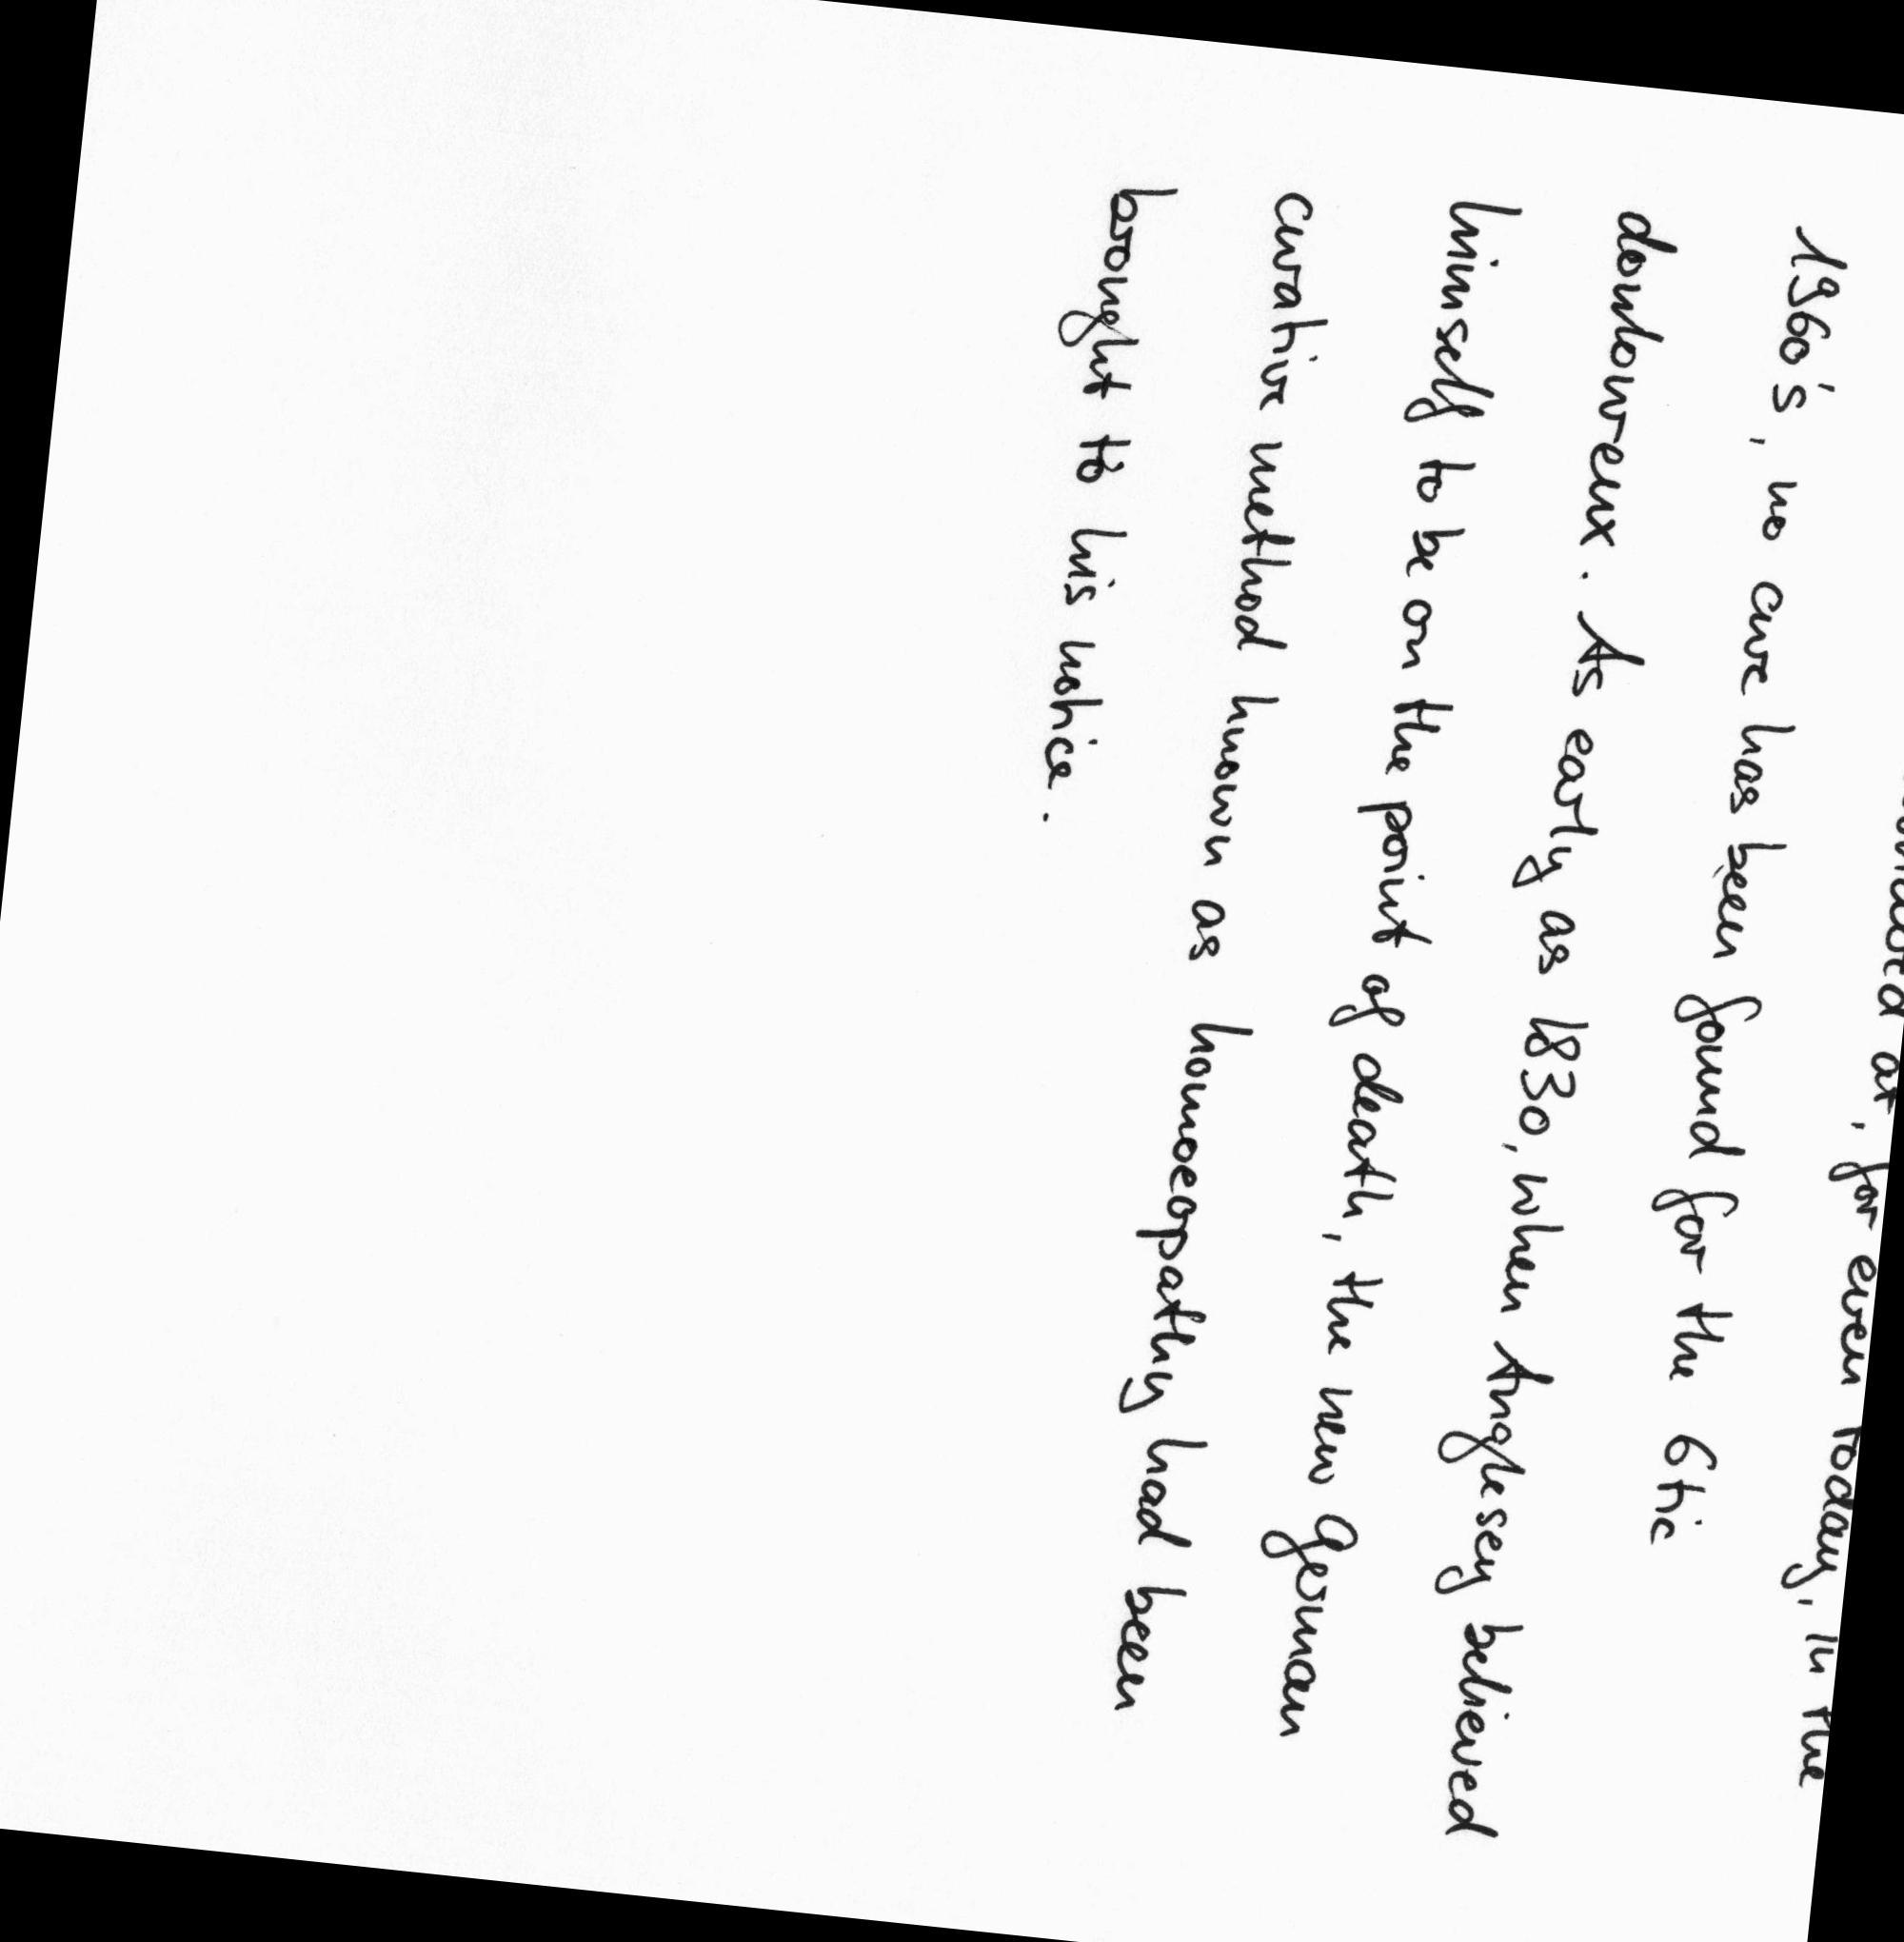 at, for even today, in the
1960's, no cure has been found for the 6tic
doulowreux. As early as 1830, when Anglesey believed
himself to be on the point of death, the new German
curative method known as homoeopathy had been
brought to his notice.